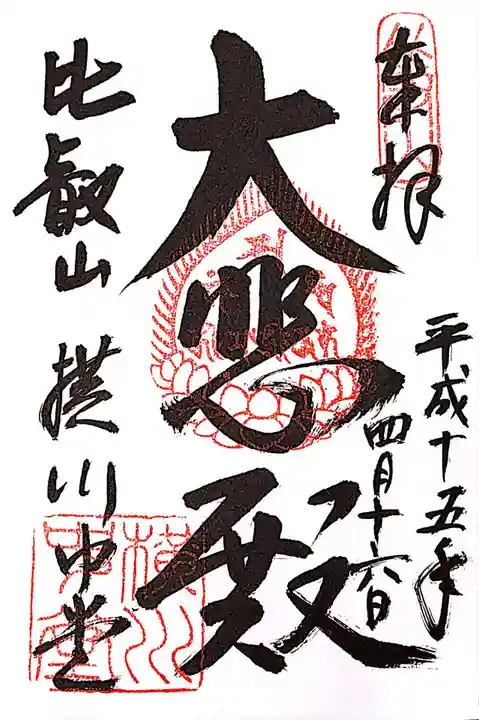 奉拝
平成十五年
四月十六日
大悲殿
比叡山 横川中堂
横川
中堂